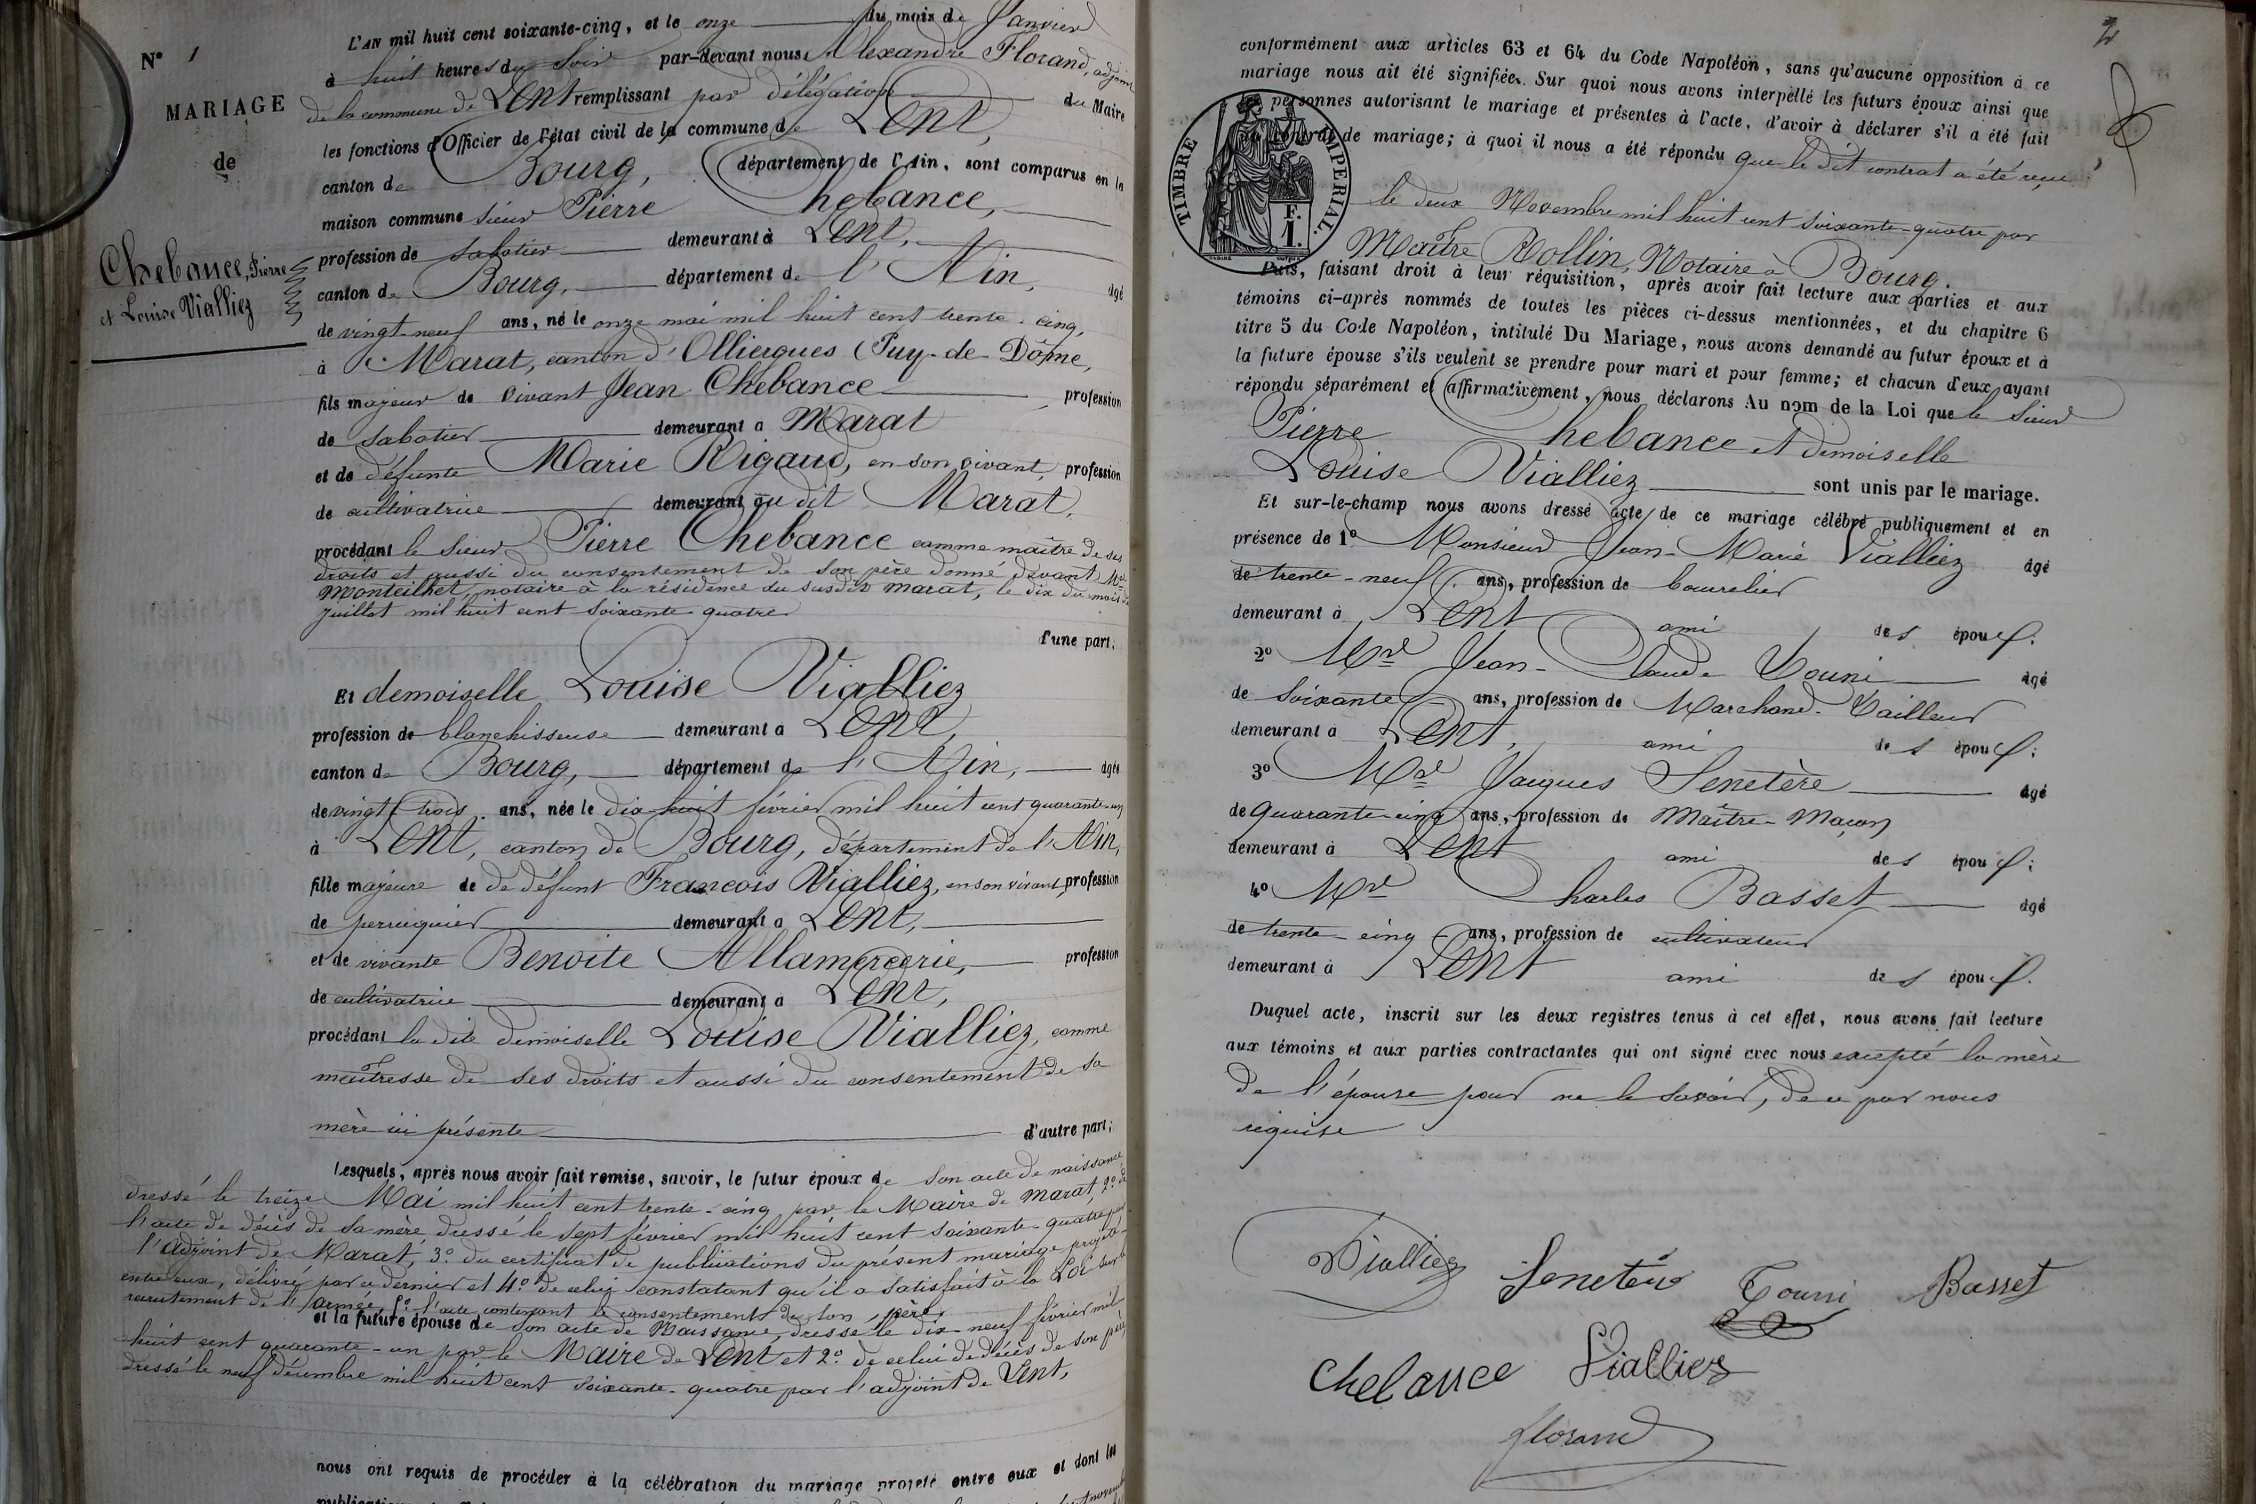 N° 1
MARIAGE
de
Chebance, Pierre
et Louise Vialliez
L'AN mil huit cent soixante-cinq, et le onze du mois de Janvier
à huit heures du Soir par-devant nous Alexandre Florand, adjoint
de la commune de Lent remplissant par délégation du Maire
les fonctions d'Officier de l'état civil de la commune de Lent,
canton de Bourg, département de l'Ain, sont comparus en la
maison commune sieur Pierre Chebance,
profession de sabotier demeurant à Lent,
canton de Bourg, département de l'Ain, âgé
de vingt-neuf ans, né le onze mai mil huit cent trente-cinq,
à Marat, canton d'Ollierques (Puy-de-Dôme,
fils majeur de vivant Jean Chebance profession
de sabotier demeurant à Marat
et de défunte Marie Rigaud, en son vivant, profession
de cultivatrice demeurant au dit Marat,
procédant le sieur Pierre Chebance comme maître de ses
droits et aussi du consentement de son père donné devant Me
Monteilhet, notaire à la résidence du susdit Marat, le dix du mois de
juillet mil huit cent soixante quatre
d'une part.
Et demoiselle Louise Vialliez
profession de blanchisseuse demeurant à Lent,
canton de Bourg, département de l'Ain, âgée
de vingt trois ans, née le dix huit février mil huit cent quarante-un
à Lent, canton de Bourg, département de l'Ain,
fille majeure de de défunt Francois Vialliez, en son vivant, profession
de perruquier demeurant à Lent,
et de vivante Benoite Allamercerie, profession
de cultivatrice demeurant à Lent,
procédant la dite demoiselle Louise Vialliez, comme
maîtresse de ses droits et aussi du consentement de sa
mère ici présente d'autre part;
Lesquels, après nous avoir fait remise, savoir, le futur époux de son acte de naissance
dressé le treize Mai mil huit cent trente-cinq par le Maire de Marat, 2° de
l'acte de décès de sa mère, dressé le sept février mil huit cent soixante-quatre par
l'adjoint de Marat, 3° du certificat de publications du présent mariage projeté
entre eux, délivré par ce dernier et 4° de celui constatant qu'il a satisfait à la Loi sur le
recrutement de l'armée, 5° l'acte contenant le consentement de son père,
et la future épouse de son acte de Naissance, dressé le dix-neuf février mil
huit cent quarante-un par le Maire de Lent et 2° de celui de décès de son père
dressé le neuf décembre mil huit cent soixante-quatre par l'adjoint de Lent,
nous ont requis de procéder à la célébration du mariage projeté entre eux et dont les
2
conformément aux articles 63 et 64 du Code Napoléon, sans qu'aucune opposition à ce
mariage nous ait été signifiée. Sur quoi nous avons interpellé les futurs époux ainsi que
les personnes autorisant le mariage et présentes à l'acte, d'avoir à déclarer s'il a été fait
contrat de mariage; à quoi il nous a été répondu que le dit contrat a été reçu
TIMBRE IMPERIAL.
F.
1.
le deux Novembre mil huit cent soixante-quatre par
Maître Rollin, Notaire à Bourg.
Puis, faisant droit à leur réquisition, après avoir fait lecture aux parties et aux
témoins ci-après nommés de toutes les pièces ci-dessus mentionnées, et du chapitre 6
titre 5 du Code Napoléon, intitulé Du Mariage, nous avons demandé au futur époux et à
la future épouse s'ils veulent se prendre pour mari et pour femme; et chacun d'eux ayant
répondu séparément et affirmativement, nous déclarons Au nom de la Loi que le Sieur
Pierre Chebance et Demoiselle
Louise Vialliez sont unis par le mariage.
Et sur-le-champ nous avons dressé acte de ce mariage célébré publiquement et en
présence de 1° Monsieur Jean-Marie Vialliez âgé
de trente-neuf ans, profession de bourrelier
demeurant à Lent ami des époux.
2° Mr Jean-Claude Touni âgé
de soixante ans, profession de Marchand-Tailleur
demeurant à Lent, ami des époux;
3° Mr Jacques Senetère âgé
de quarante-cinq ans, profession de Maître-Maçon
demeurant à Lent ami des époux;
4° Mr Charles Basset âgé
de trente-cinq ans, profession de cultivateur
demeurant à Lent ami des époux.
Duquel acte, inscrit sur les deux registres tenus à cet effet, nous avons fait lecture
aux témoins et aux parties contractantes qui ont signé avec nous excepté la mère
de l'épouse pour ne le savoir, de ce par nous
requise
Vialliez Senetère Touni Basset
Chebance Vialliez
florand